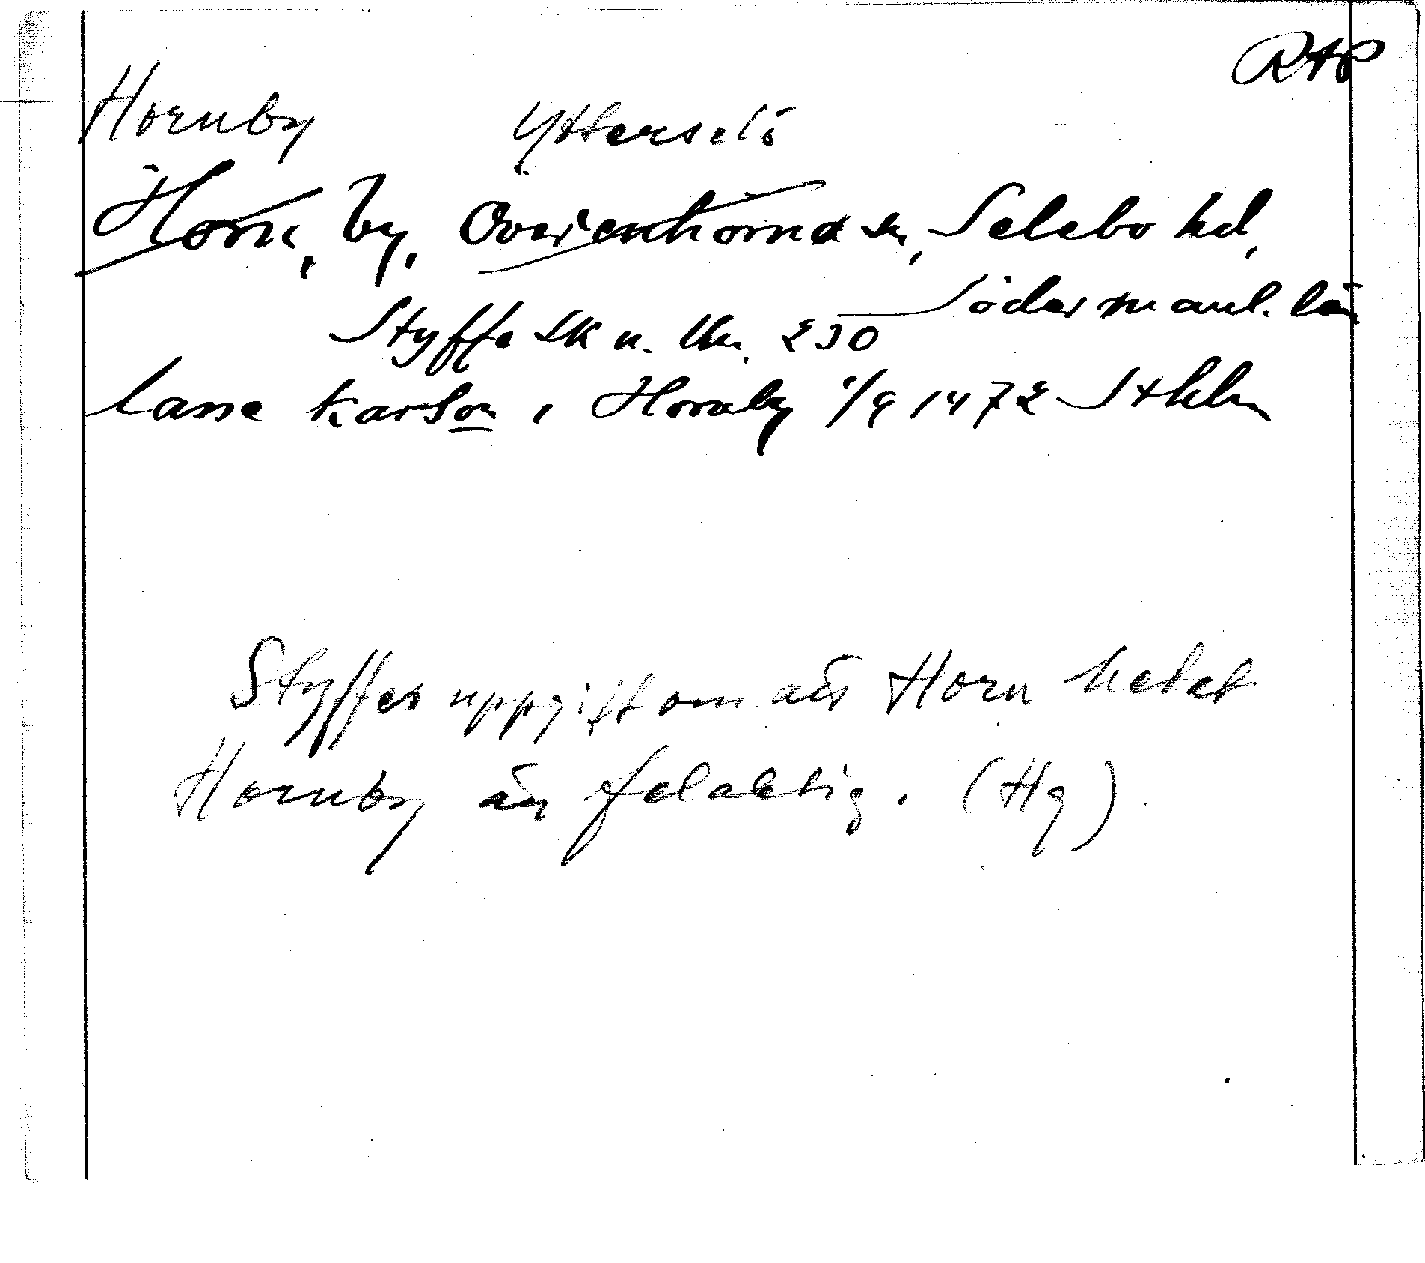 RAP
Hornby Ytterselö
Horn, by, Överenhörna sn, Selebo hd,
Södermanl. län
Styffe Sk u. Un. 230
lasse karlson i Hornby 1/9 1472 Sthlm
Styffes uppgift om att Horn hetat
Hornby är felaktig. (Hg)